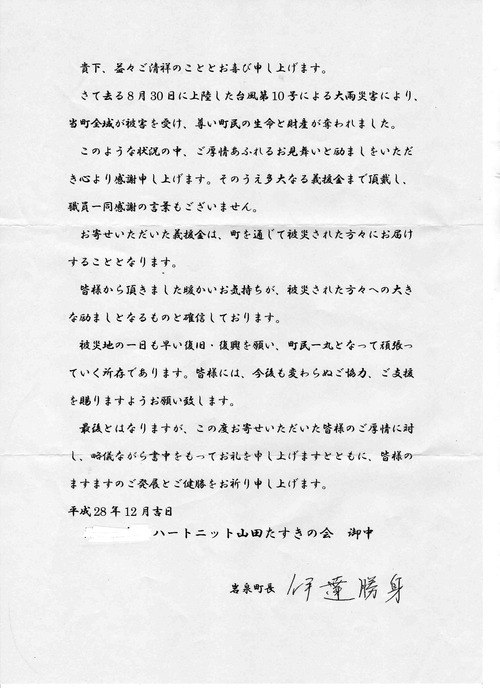 貴下、益々ご清祥のこととお喜び申し上げます。
さて去る8月30日に上陸した台風第10号による大雨災害により、
当町全域が被害を受け、尊い町民の生命と財産が奪われました。
このような状況の中、ご厚情あふれるお見舞いと励ましをいただ
き心より感謝申し上げます。そのうえ多大なる義援金まで頂戴し、
職員一同感謝の言葉もございません。
お寄せいただいた義援金は、町を通じて被災された方々にお届け
することとなります。
皆様から頂きました暖かいお気持ちが、被災された方々への大き
な励ましとなるものと確信しております。
被災地の一日も早い復旧・復興を願い、町民一丸となって頑張っ
ていく所存であります。皆様には、今後も変わらぬご協力、ご支援
を賜りますようお願い致します。
最後とはなりますが、この度お寄せいただいた皆様のご厚情に対
し、略儀ながら書中をもってお礼を申し上げますとともに、皆様の
ますますのご発展とご健勝をお祈り申し上げます。
平成28年12月吉日
ハートニット山田たすきの会 御中
岩泉町長 伊達勝身